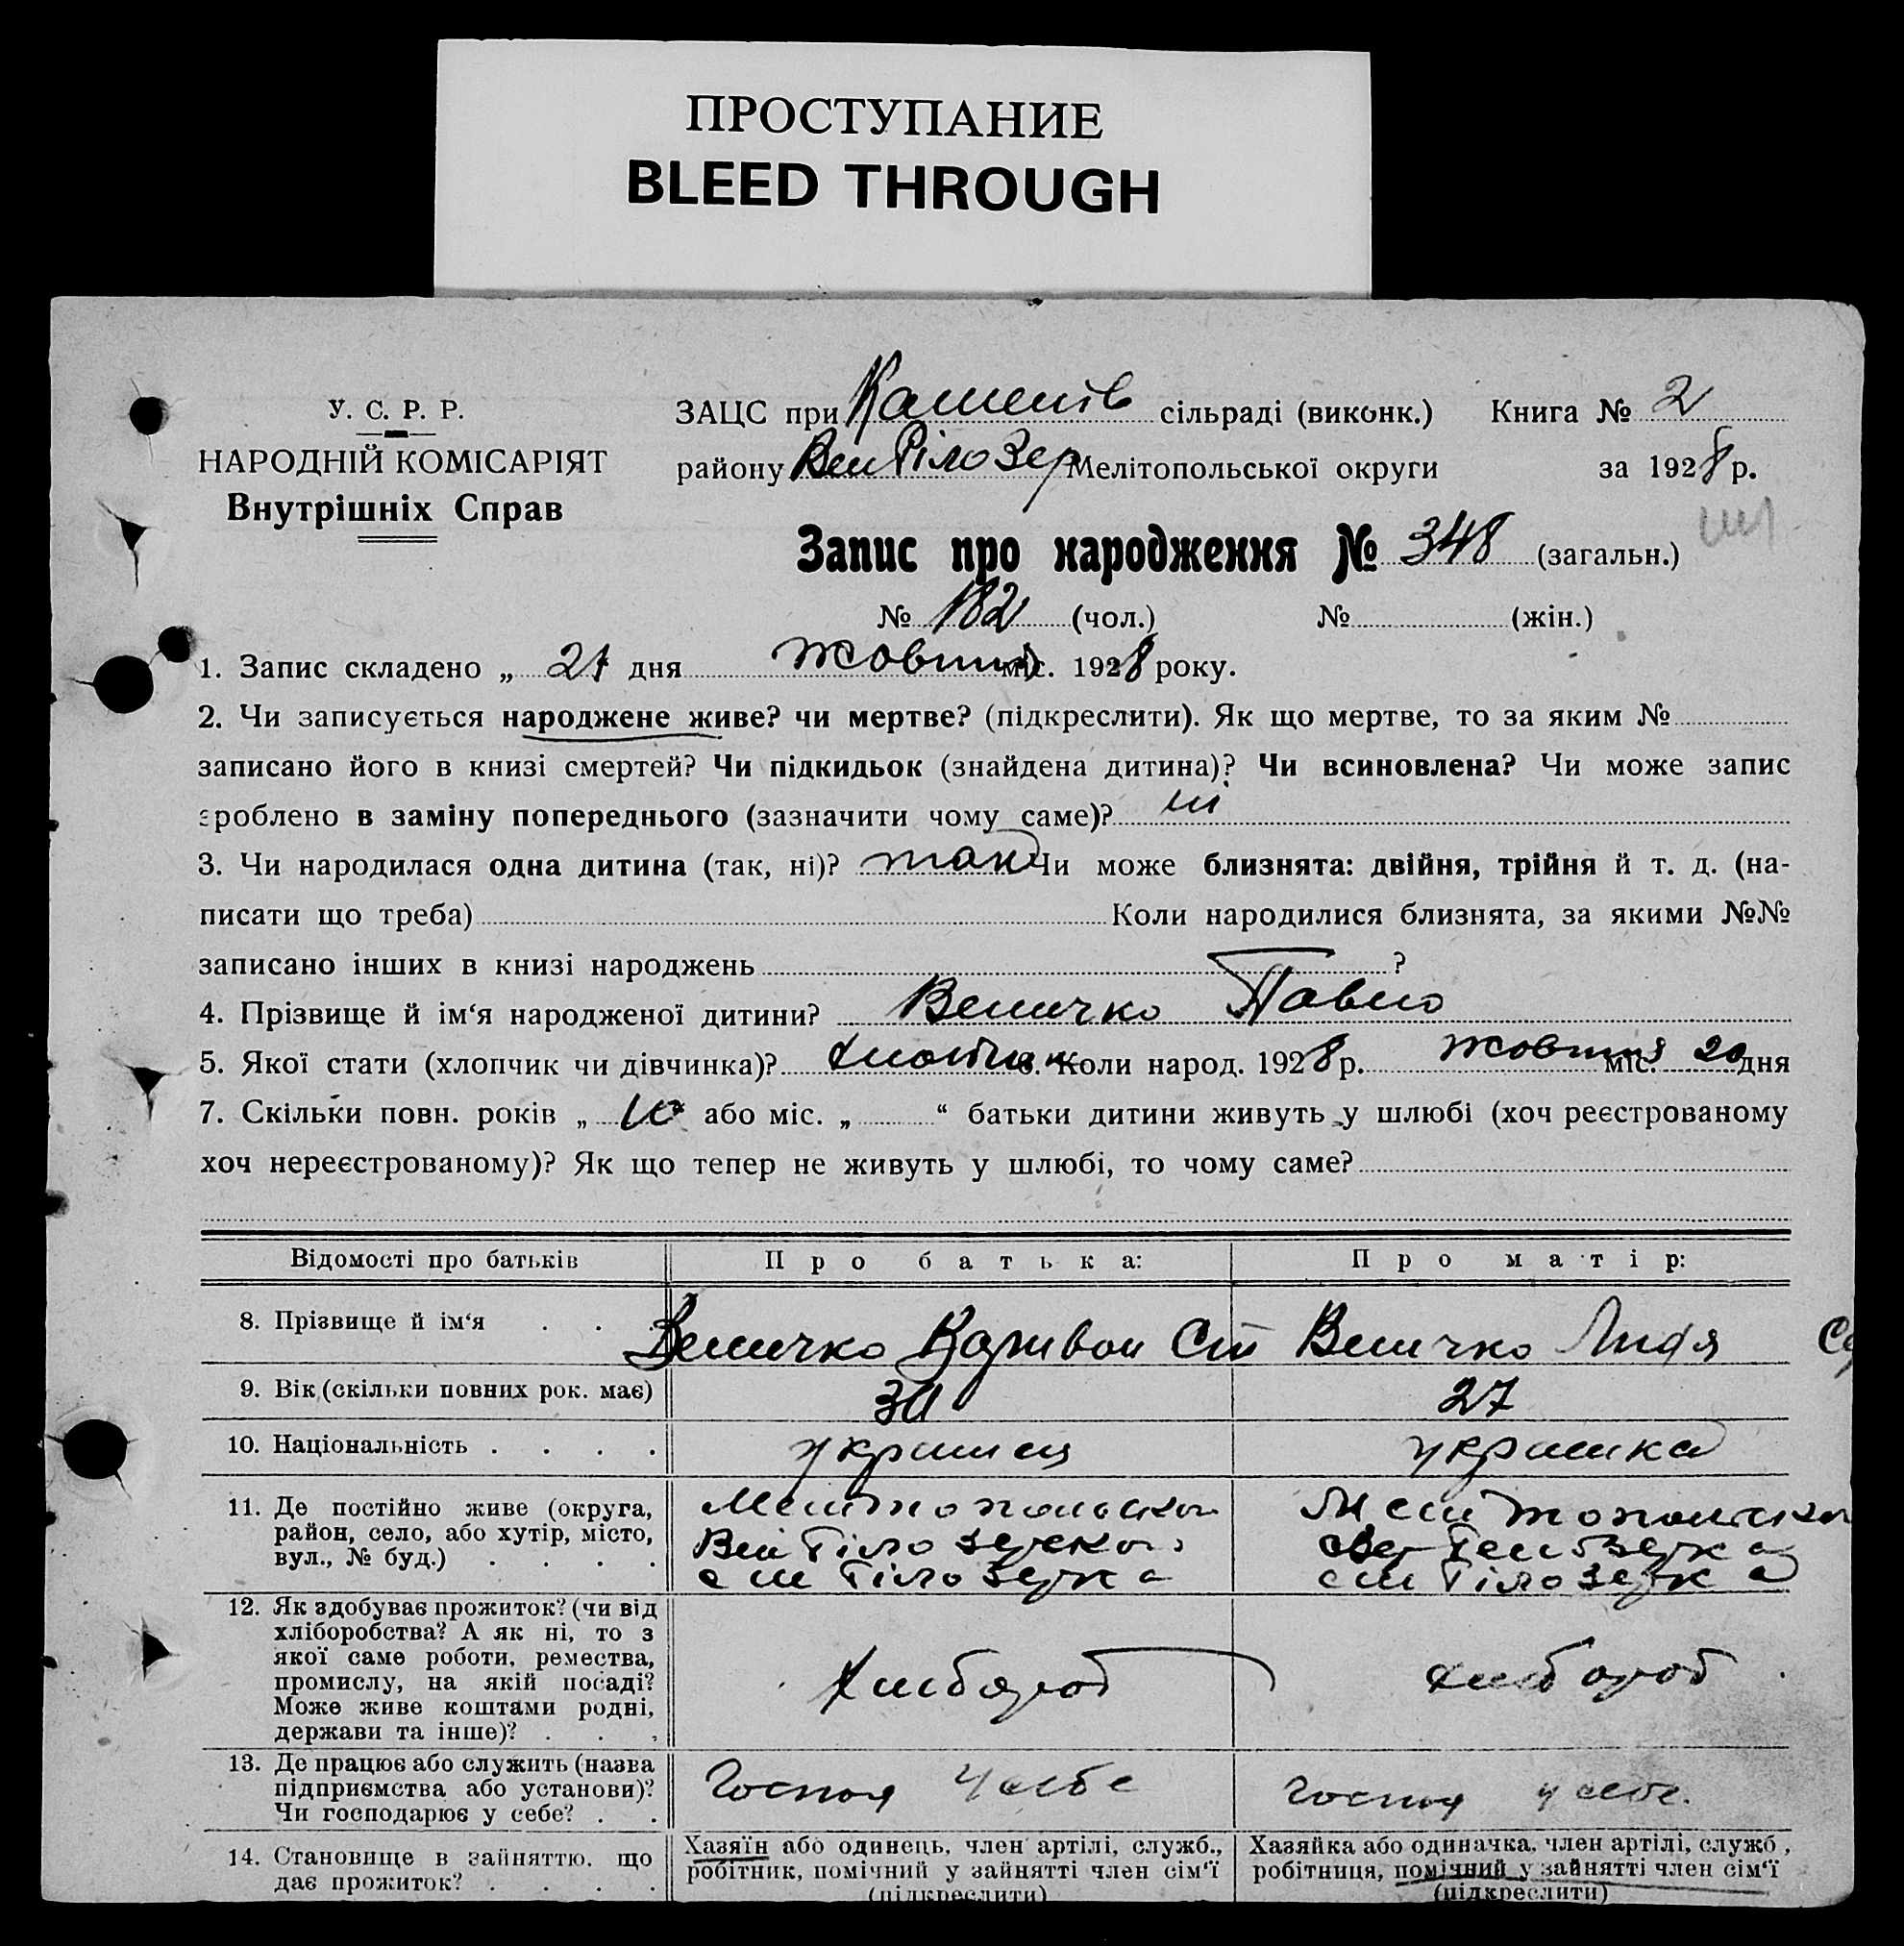 ПРОСТУПАНИЕ
BLEED THROUGH
У. С. Р. Р.
НАРОДНІЙ КОМІСАРІЯТ
Внутрішніх Справ
ЗАЦС при сільраді (виконк.) Книга № 2
району Мелітопольської округи за 1928 р.
Запис про народження № 348 (загальн.)
№ 182 (чол.) № (жін.)
1. Запис складено „ дня міс. 1928 року.
2. Чи записується народжене живе? чи мертве? (підкреслити). Як що мертве, то за яким №
записано його в книзі смертей? Чи підкидьок (знайдена дитина)? Чи всиновлена? Чи може запис
зроблено в заміну попереднього (зазначити чому саме)? ні
3. Чи народилася одна дитина (так, ні)? так Чи може близнята: двійня, трійня й т. д. (на-
писати що треба) Коли народилися близнята, за якими №№
записано інших в книзі народжень ?
4. Прізвище й ім‘я народженої дитини? Величко Павло
5. Якої стати (хлопчик чи дівчинка)? хлопчик 6. Коли народ. 1928 р. жовтня міс. 20 дня
7. Скільки повн. років „ 10 або міс. „ “ батьки дитини живуть у шлюбі (хоч реєстрованому
хоч нереєстрованому)? Як що тепер не живуть у шлюбі, то чому саме?
Відомості про батьків Про батька: Про матір:
8. Прізвище й ім‘я . . . Величко Величко Лидя
9. Вік (скільки повних рок. має) 27
10. Національність . . . .
11. Де постійно живе (округа,
район, село, або хутір, місто,
вул., № буд.) . . . .
12. Як здобуває прожиток? (чи від
хліборобства? А як ні, то з
якої саме роботи, ремества,
промислу, на якій посаді?
Може живе коштами родні,
держави та інше)? . . .
хлібороб хлібороб
13. Де працює або служить (назва
підприємства або установи)?
Чи господарює у себе? . .
у себе у себе.
14. Становище в зайняттю, що
дає прожиток? . . . .
Хазяїн або одинець, член артілі, служб.,
робітник, помічний у зайнятті член сім‘ї
(підкреслити)
Хазяйка або одиначка, член артілі, служб,
робітниця, помічний у зайнятті член сім‘ї
(підкреслити)